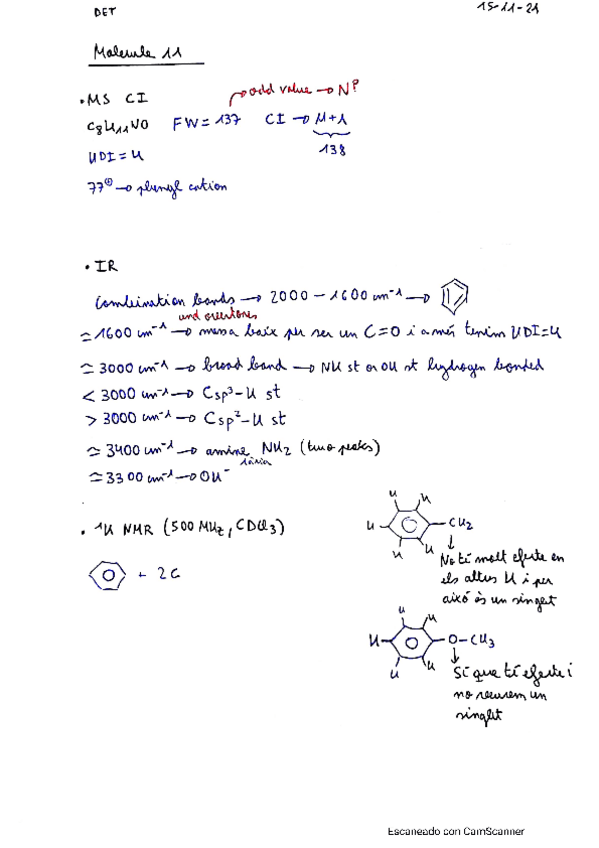 DET
15-11-21
Molecule 11
• MS CI
odd value → Nº
C8H11NO FW = 137 CI → M+1
138
UDI = 4
77⊕ → phenyl cation
• IR
Combination bands → 2000 - 1600 cm⁻¹ →
and overtones
≃ 1600 cm⁻¹ → massa baix per ser un C=O i a més tenim UDI=4
≃ 3000 cm⁻¹ → broad band → NH st or OH st hydrogen bonded
< 3000 cm⁻¹ → Csp³-H st
> 3000 cm⁻¹ → Csp²-H st
≃ 3400 cm⁻¹ → amine NH2 (two peaks)
≃ 3300 cm⁻¹ → OH⁻
• 1H NMR (500 MHz, CDCl3)
+ 2C
H H
H CH2
H H
No té molt efecte en
els altres H i per
això és un singlet
H H
H O-CH3
H H
Sí que té efecte i
no veurem un
singlet
Escaneado con CamScanner